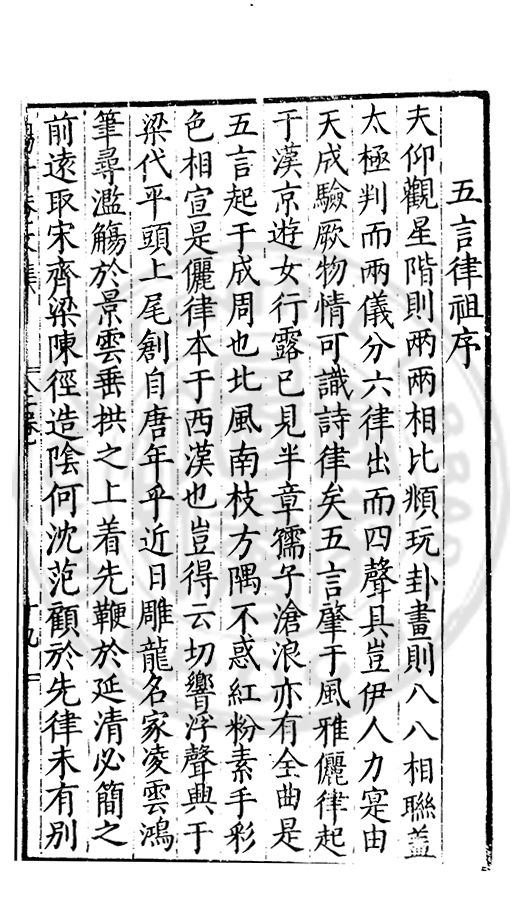 五言律祖序
夫仰觀星階則两两相比頫玩卦畫則八八相聯蓋
太極判而兩儀分六律出而四聲具豈伊人力寔由
天成驗厥物情可識詩律矣五言肇于風雅儷律起
于漢京遊女行露已見半章孺子滄浪亦有全曲是
五言起于成周也北風南枝方隅不惑紅粉素手彩
色相宣是儷律本于西漢也豈得云切響浮聲興于
梁代平頭上尾創自唐年乎近日雕龍名家凌雲鴻
筆尋濫觴於景雲垂拱之上着先鞭於延清必簡之
前遠取宋齊梁陳徑造陰何沈范顧於先律未有別